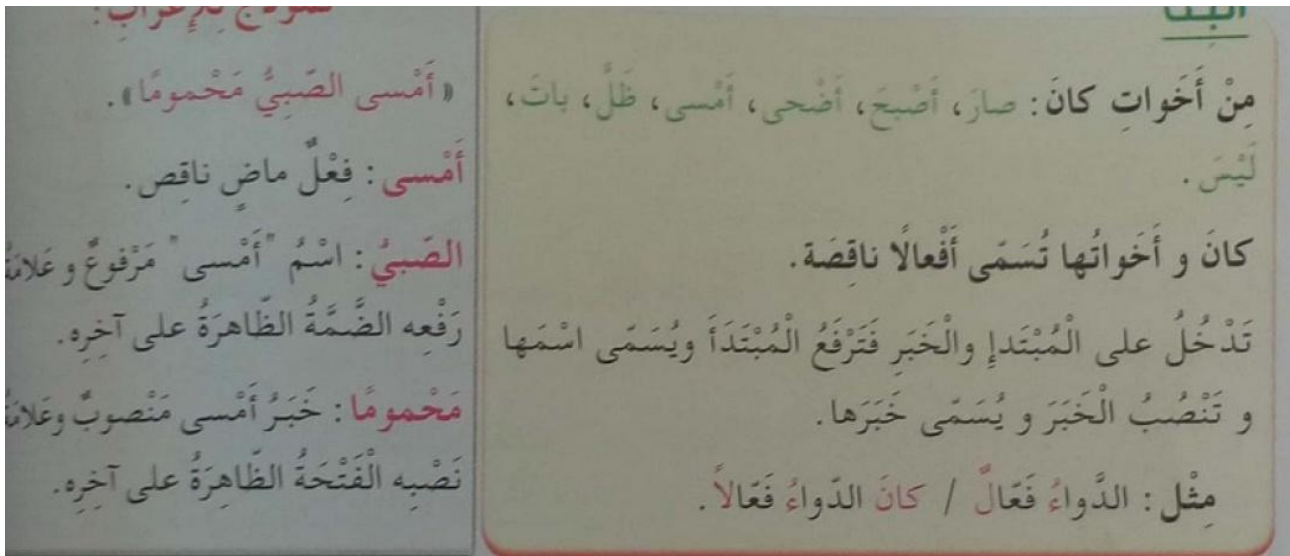 أَلْبِنَا
مِنْ أَخَواتِ كانَ: صارَ، أَصْبحَ، أَضْحى، أَمْسى، ظَلَّ، باتَ،
لَيْسَ.
كانَ و أَخَواتُها تُسَمّى أَفْعالًا ناقِصَة.
تَدْخُلُ على الْمُبْتَدإِ والْخَبَرِ فَتَرْفَعُ الْمُبْتَدَأَ ويُسَمّى اسْمَها
و تَنْصُبُ الْخَبَرَ و يُسَمّى خَبَرَها.
مِثْل: الدَّواءُ فَعّالٌ / كانَ الدّواءُ فَعّالاً.
نموذج لِلإِعْرابِ:
«أَمْسى الصَّبِيُّ مَحْمومًا».
أَمْسى: فِعْلٌ ماضٍ ناقِص.
الصَّبيُ: اسْمُ "أَمْسى" مَرْفوعٌ و عَلامَةُ
رَفْعِه الضَّمَّةُ الظّاهرَةُ على آخِرِه.
مَحْمومًا: خَبَرُ أَمْسى مَنْصوبٌ وعَلامَةُ
نَصْبِه الْفَتْحَةُ الظّاهِرَةُ على آخِرِه.